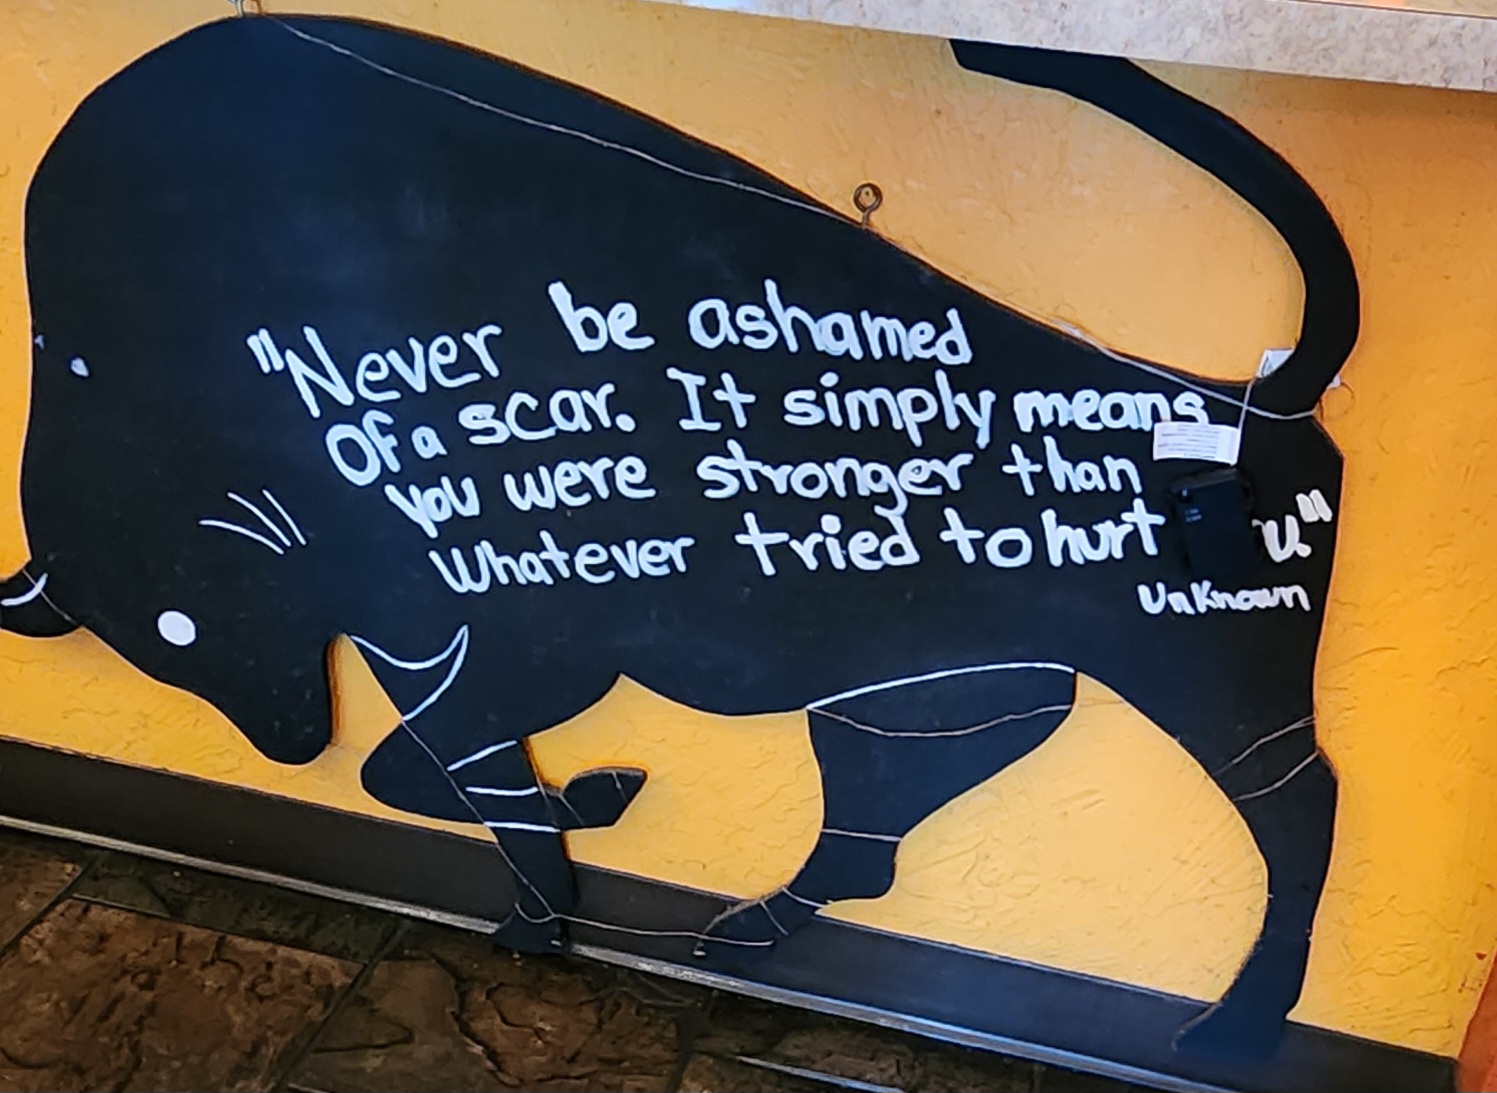 "Never be ashamed
Of a scar. It simply means
you were stronger than
Whatever tried to hurt u."
UnKnown